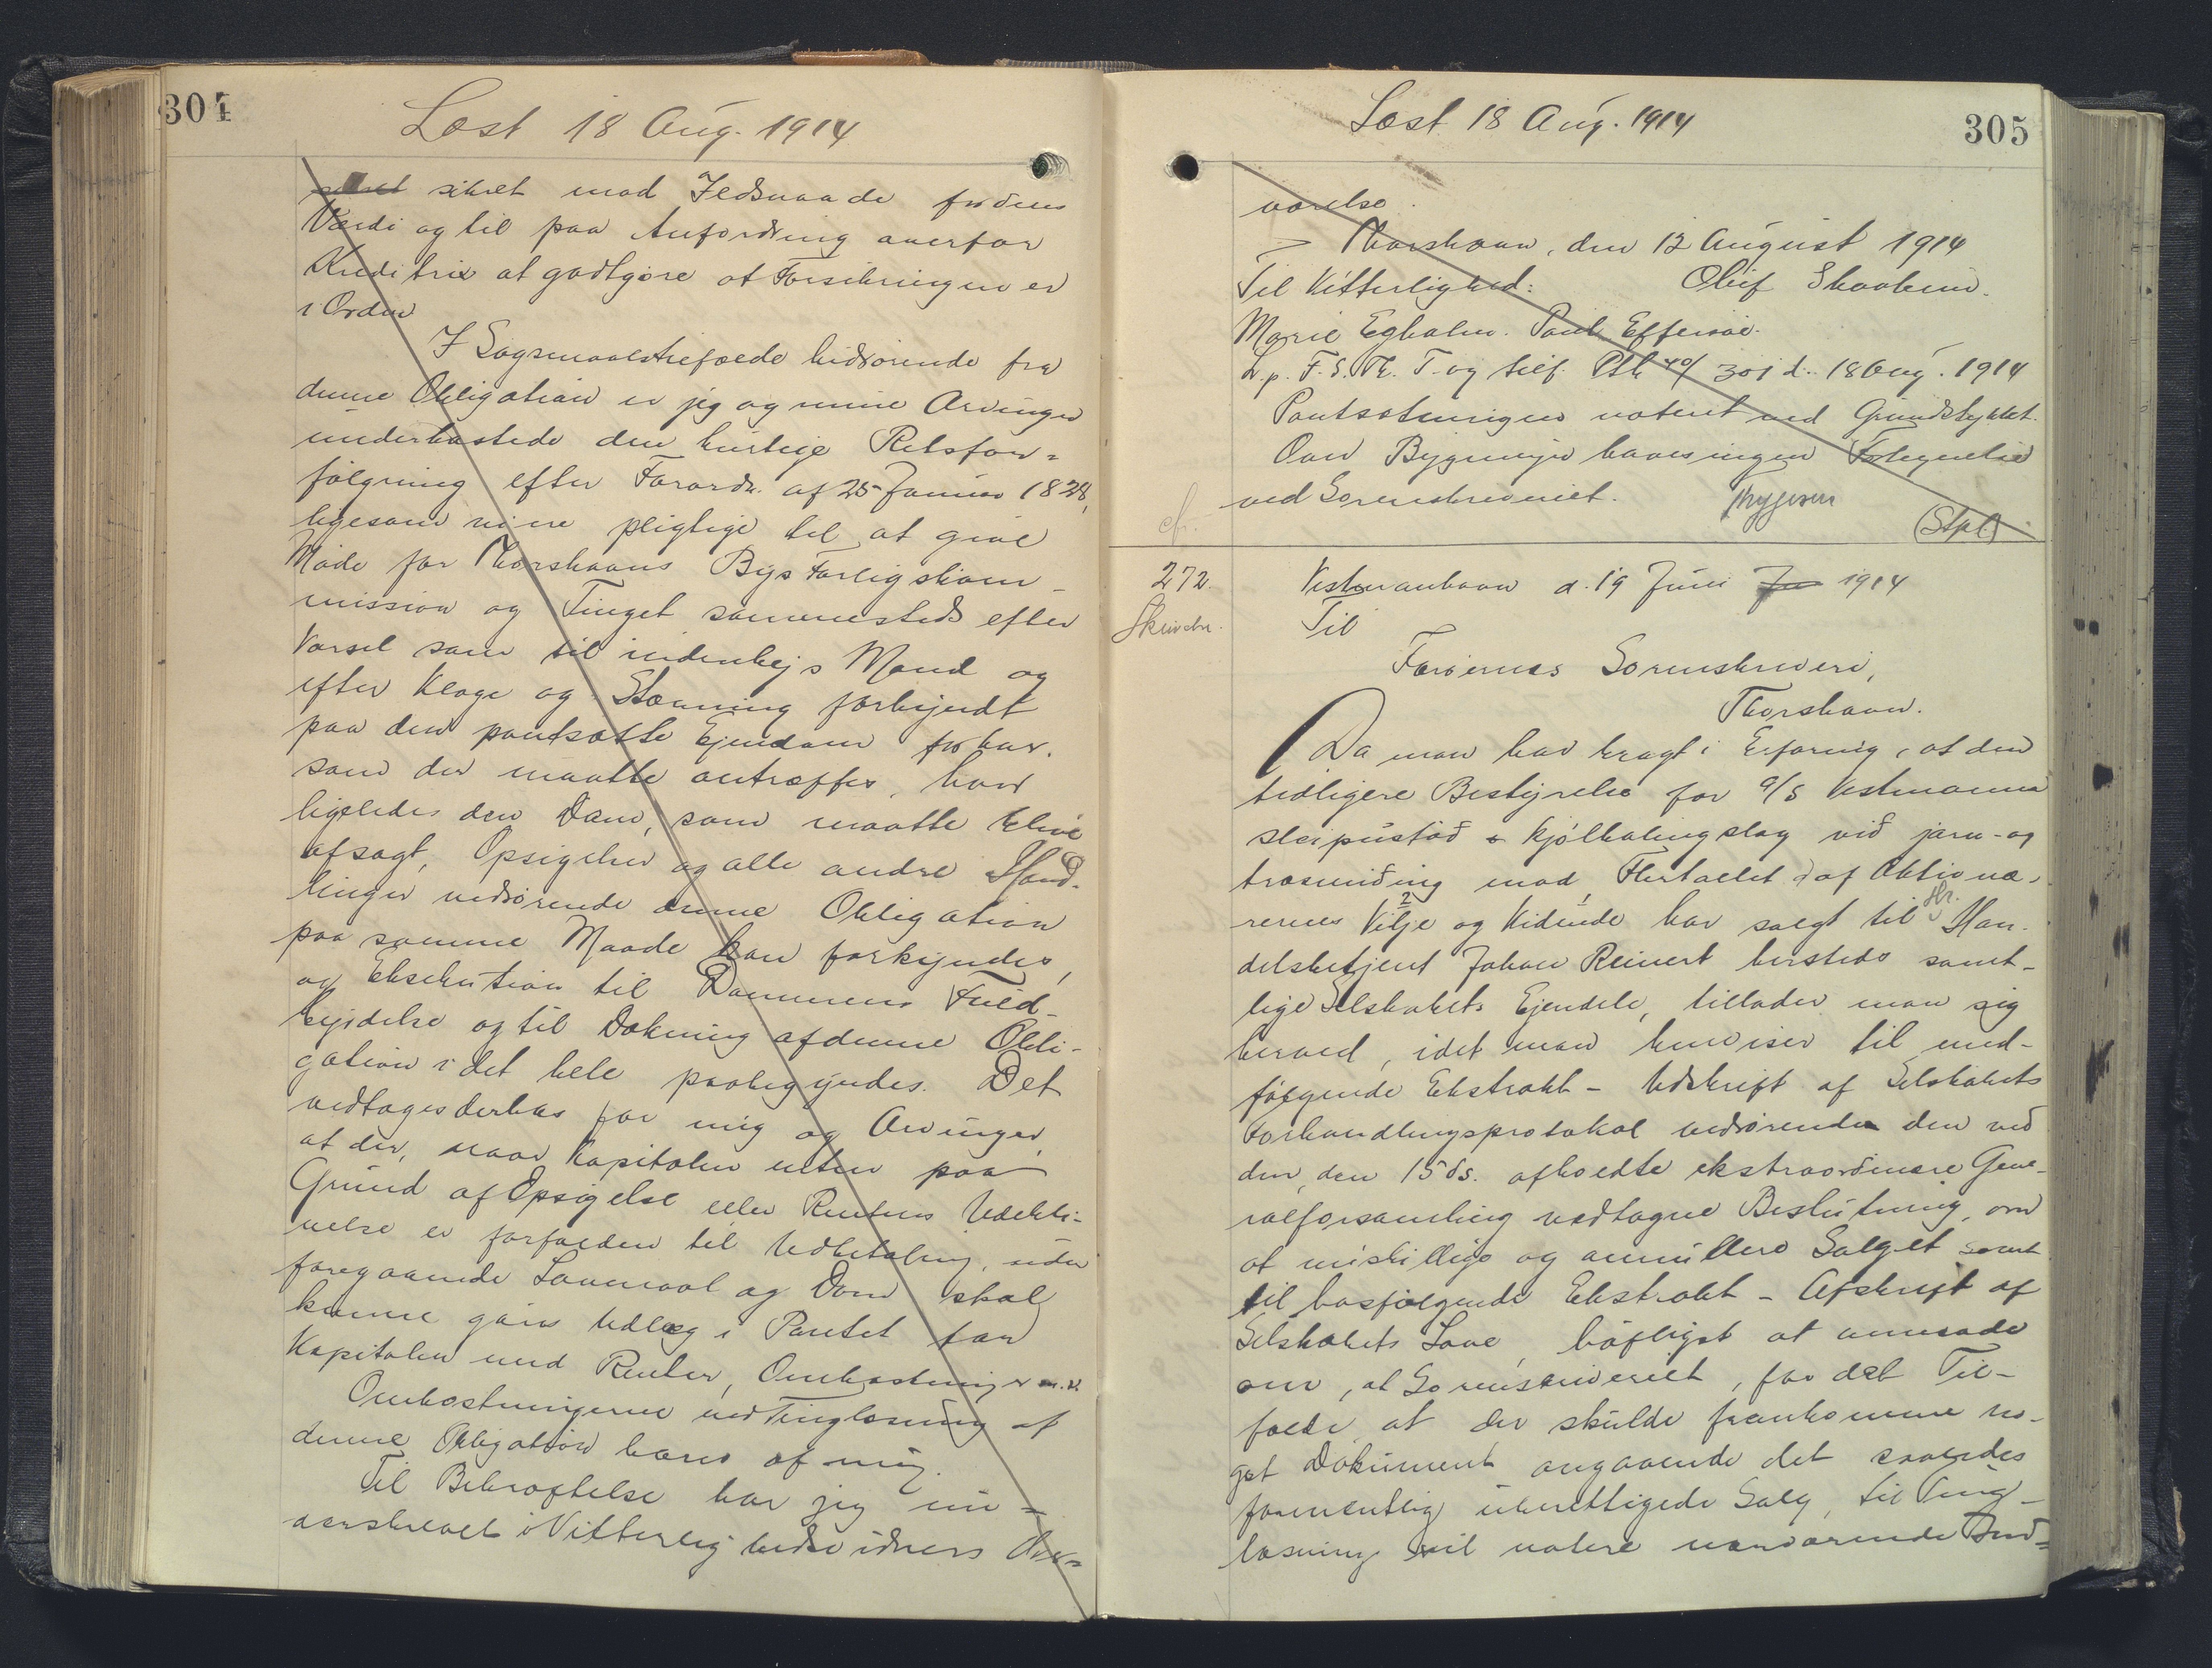 304
Læst 18 Aug. 1914
sikret mod Ildsvaade for dens
Værdi og til paa Anfordring overfor
Kreditrix at godtgøre at Forsikringen er
i Orden
I Sagsmaalstilfælde hidrørende fra
denne Obligation er jeg og mine Arvinger
underkastede den hurtige Retsfor=
følgning efter Forordn. af 25 Januar 1828,
ligesom vi ere pligtige til at give
Møde for Thorshavns Bys Forligskom-
mission og Tinget sammesteds efter
Varsel som til indenbys Mand og
efter Klage og Stævning forkyndt
paa den pantsatte Ejendom for hvem
som der maatte antræffes, hvor
ligeledes den Dom, som maatte blive
afsagt, Opsigelser og alle andre Hand-
linger vedrørende denne Obligation
paa samme Maade kan forkyndes,
og Eksekution til Dommens Fuld-
byrdelse og til Dækning af denne Obli-
gation i det hele paabegyndes. Det
vedtages derhos for mig og Arvinger,
at der, naar Kapitalen enten paa
Grund af Opsigelse eller Rentens Udebli-
velse er forfalden til Udbetaling, uden
foregaaende Lovmaal og Dom skal
kunne gøres Udlæg i Pantet for
Kapitalen med Renter, Omkostninger m.v.
Omkostningerne ved Tinglæsning af
denne Obligation bæres af mig.
Til Bekræftelse har jeg un-
derskrevet i Vitterlighedsvidners Over=
305
Læst 18 Aug. 1914
værelse.
Thorshavn, den 12 August 1914
Til Vitterlighed: Oluf Skaalum.
Marie Egholm. Poul Effersøe.
L. p. F. S. Th. T. og tilf. Ptb 40/301 d. 18 Aug. 1914
Pantsætningen noteret ved Grundstykket.
Over Bygninger haves ingen Fortegnelse
ved Sorenskriveriet. Thygesen
(Stpl)
cfr.
272.
Skrivelse.
Vestmanhavn d. 19 Juni 1914
Til
Færøernes Sorenskriveri,
Thorshavn.
Da man har bragt i Erfaring, at den
tidligere Bestyrelse for A/S Vestmanna
sleipustøð & kjølhalingslag við jarn- og
træsmiðing mod Flertallet af Aktionæ-
rernes Vilje og Vidende har solgt til Hr. Han-
delsbetjent Johan Reinert hersteds samt-
lige Selskabets Ejendele, tillader man sig
herved, idet man henviser til med-
følgende Ekstrakt-Udskrift af Selskabets
Forhandlingsprotokol vedrørende den ved
den, den 15 ds. afholdte ekstraordinære Gene-
ralforsamling vedtagne Beslutning, om
at misbillige og annullere Salget samt
til hosfølgende Ekstrakt-Afskrift af
Selskabets Love, høfligst at anmode
om, at Sorenskriveriet, for det Til-
fælde, at der skulde fremkomme no-
get Dokument angaaende det saaledes
formentlig uberettigede Salg, til Ting-
læsning vil notere nærværende Ind=